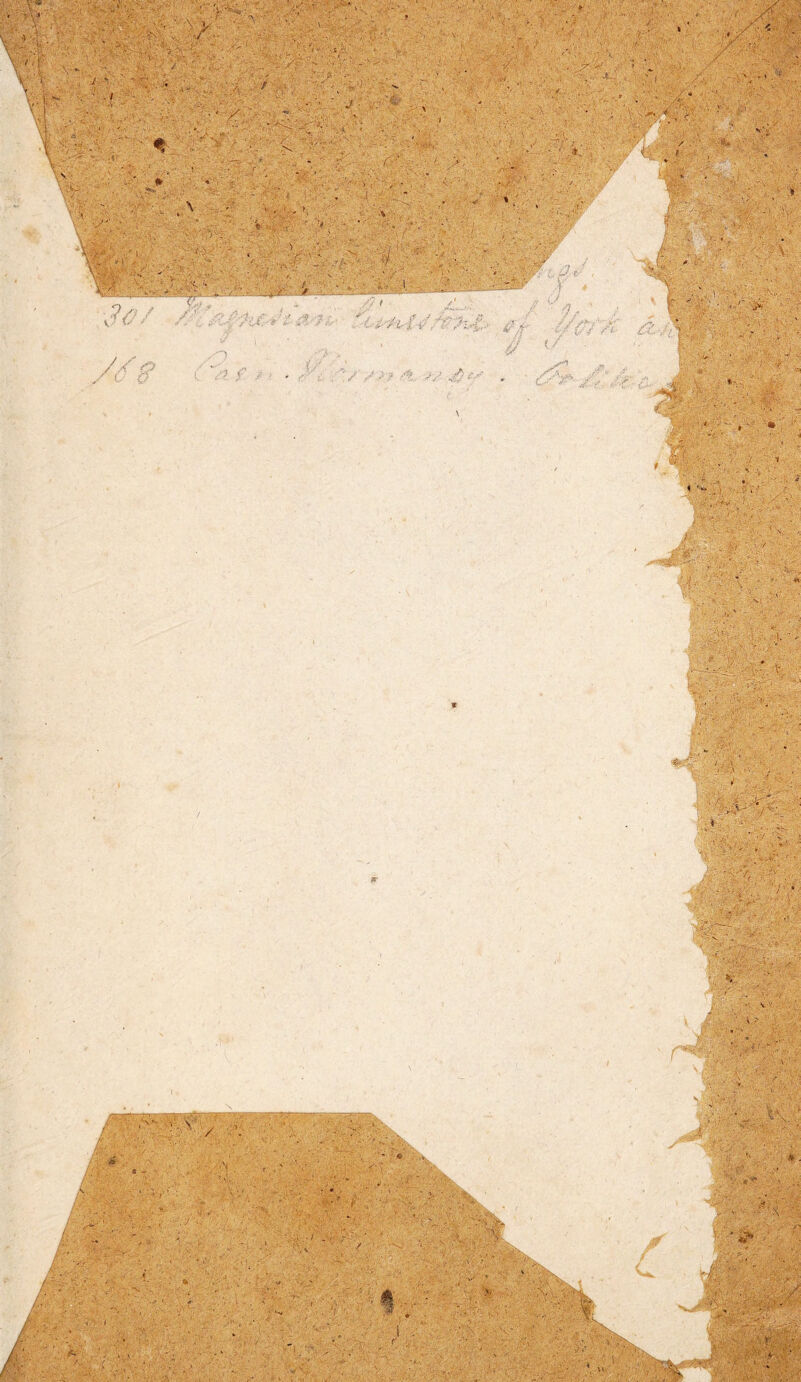 301 Magnesian limestone of York an
168 Caen. Normandy. Oolite